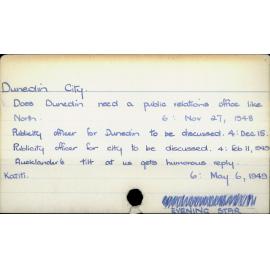 Dunedin City.
Does Dunedin need a public relations office like
North. 6: Nov 27, 1948
Publicity officer for Dunedin to be discussed. 4: Dec 15.
Publicity officer for city to be discussed. 4: Feb 11, 1949
Aucklander's tilt at us gets humorous reply.
6: May 6, 1949
EVENING STAR